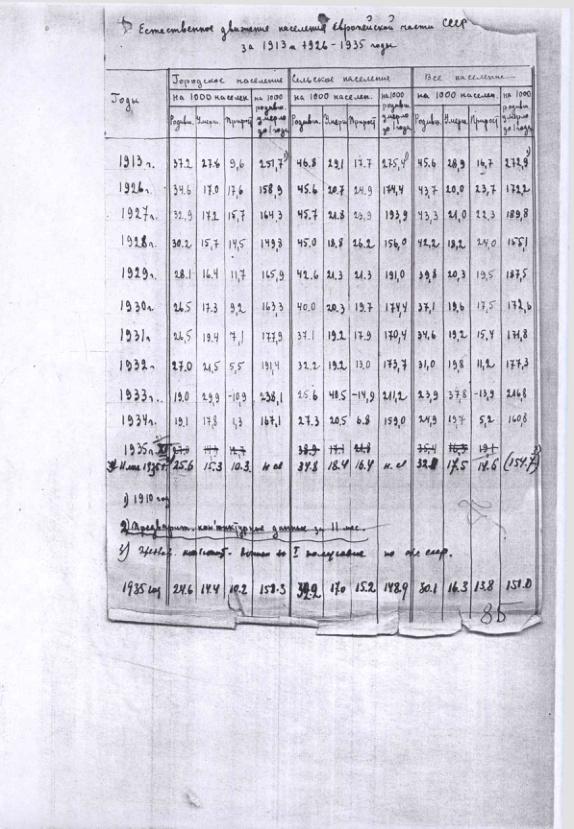 Естественное движение населения европейской части СССР
за 1913 и 1926-1935 годы
Годы Городское население Сельское население Все население
на 1000 населен. на 1000 родивш. умерло до 1 года на 1000 населен. на 1000 родивш. умерло до 1 года на 1000 населен. на 1000 родивш. умерло до 1 года
Родивш. Умерш. Прирост Родивш. Умерш. Прирост Родивш. Умерш. Прирост
1913 г. 37.2 27.6 9,6 251,7 1) 46.8 29,1 17.7 275,4 1) 45.6 28,9 16,7 272,9 1)
1926 г. 34.6 17.0 17,6 158,9 45.6 20.7 24.9 174,4 43,7 20.0 23,7 172,2
1927 г. 32,9 17,2 15,7 164,3 45.7 21.8 23,9 193,9 43,3 21,0 22,3 189,8
1928 г. 30.2 15,7 14,5 149,8 45.0 18,8 26.2 156,0 42,2 18,2 24,0 155,1
1929 г. 28.1 16.4 11,7 165,9 42.6 21,3 21.3 191,0 39,8 20,3 19,5 187,5
1930 г. 26,5 17.3 9,2 163,3 40.0 20.3 19.7 174,4 37,1 19,6 17,5 172,6
1931 г. 26,5 19.4 7,1 177,9 37.1 19,2 17.9 170,4 34,6 19,2 15,4 171,8
1932 г. 27.0 21,5 5,5 191,4 32.2 19,2 13,0 173,7 31,0 19,8 11,2 177,3
1933 г. 19.0 29,9 -10,9 238,1 25.6 40,5 -14,9 211,2 23,9 37,8 -13,9 216,8
1934 г. 19,1 17,8 1,3 167,1 27.3 20,5 6.8 159,0 24,9 19,7 5,2 160,8
1935 г.
11 мес 1935 г. 25.6 15.3 10.3 н св 34.8 18.4 16.4 н. св 17,5 14.6 (154.7)
1) 1910 год
2) Предварит. кон'юнктурные данные за 11 мес.
3) I полугодие по
1935 год 24.6 14.4 10.2 158.3 32.2 17.0 15.2 148,9 30.1 16.3 13.8 151.0